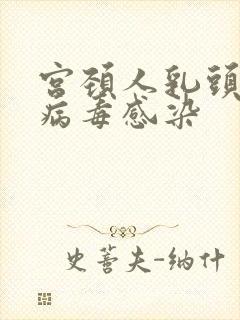 宫頚人乳頭
病毒感染
史蕾夫-纳什